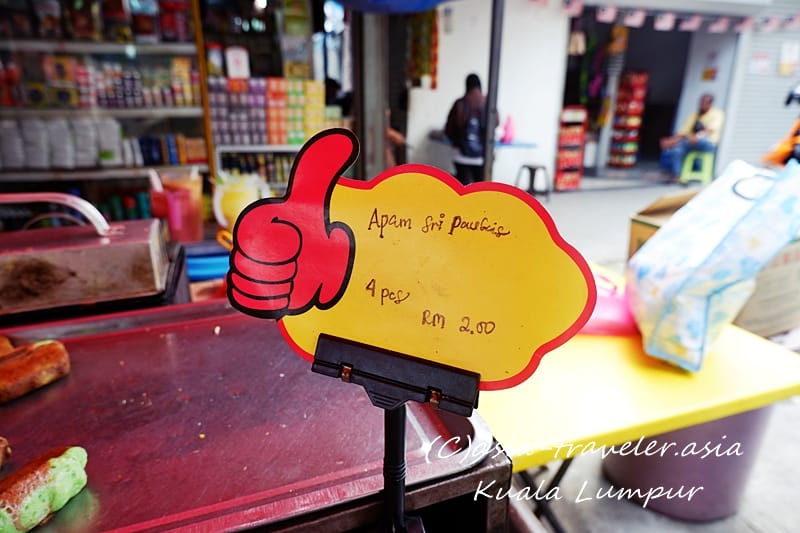 Apam Sri Paukis
4 pcs
RM 2.00
(C)asia-traveler.asia
Kuala Lumpur